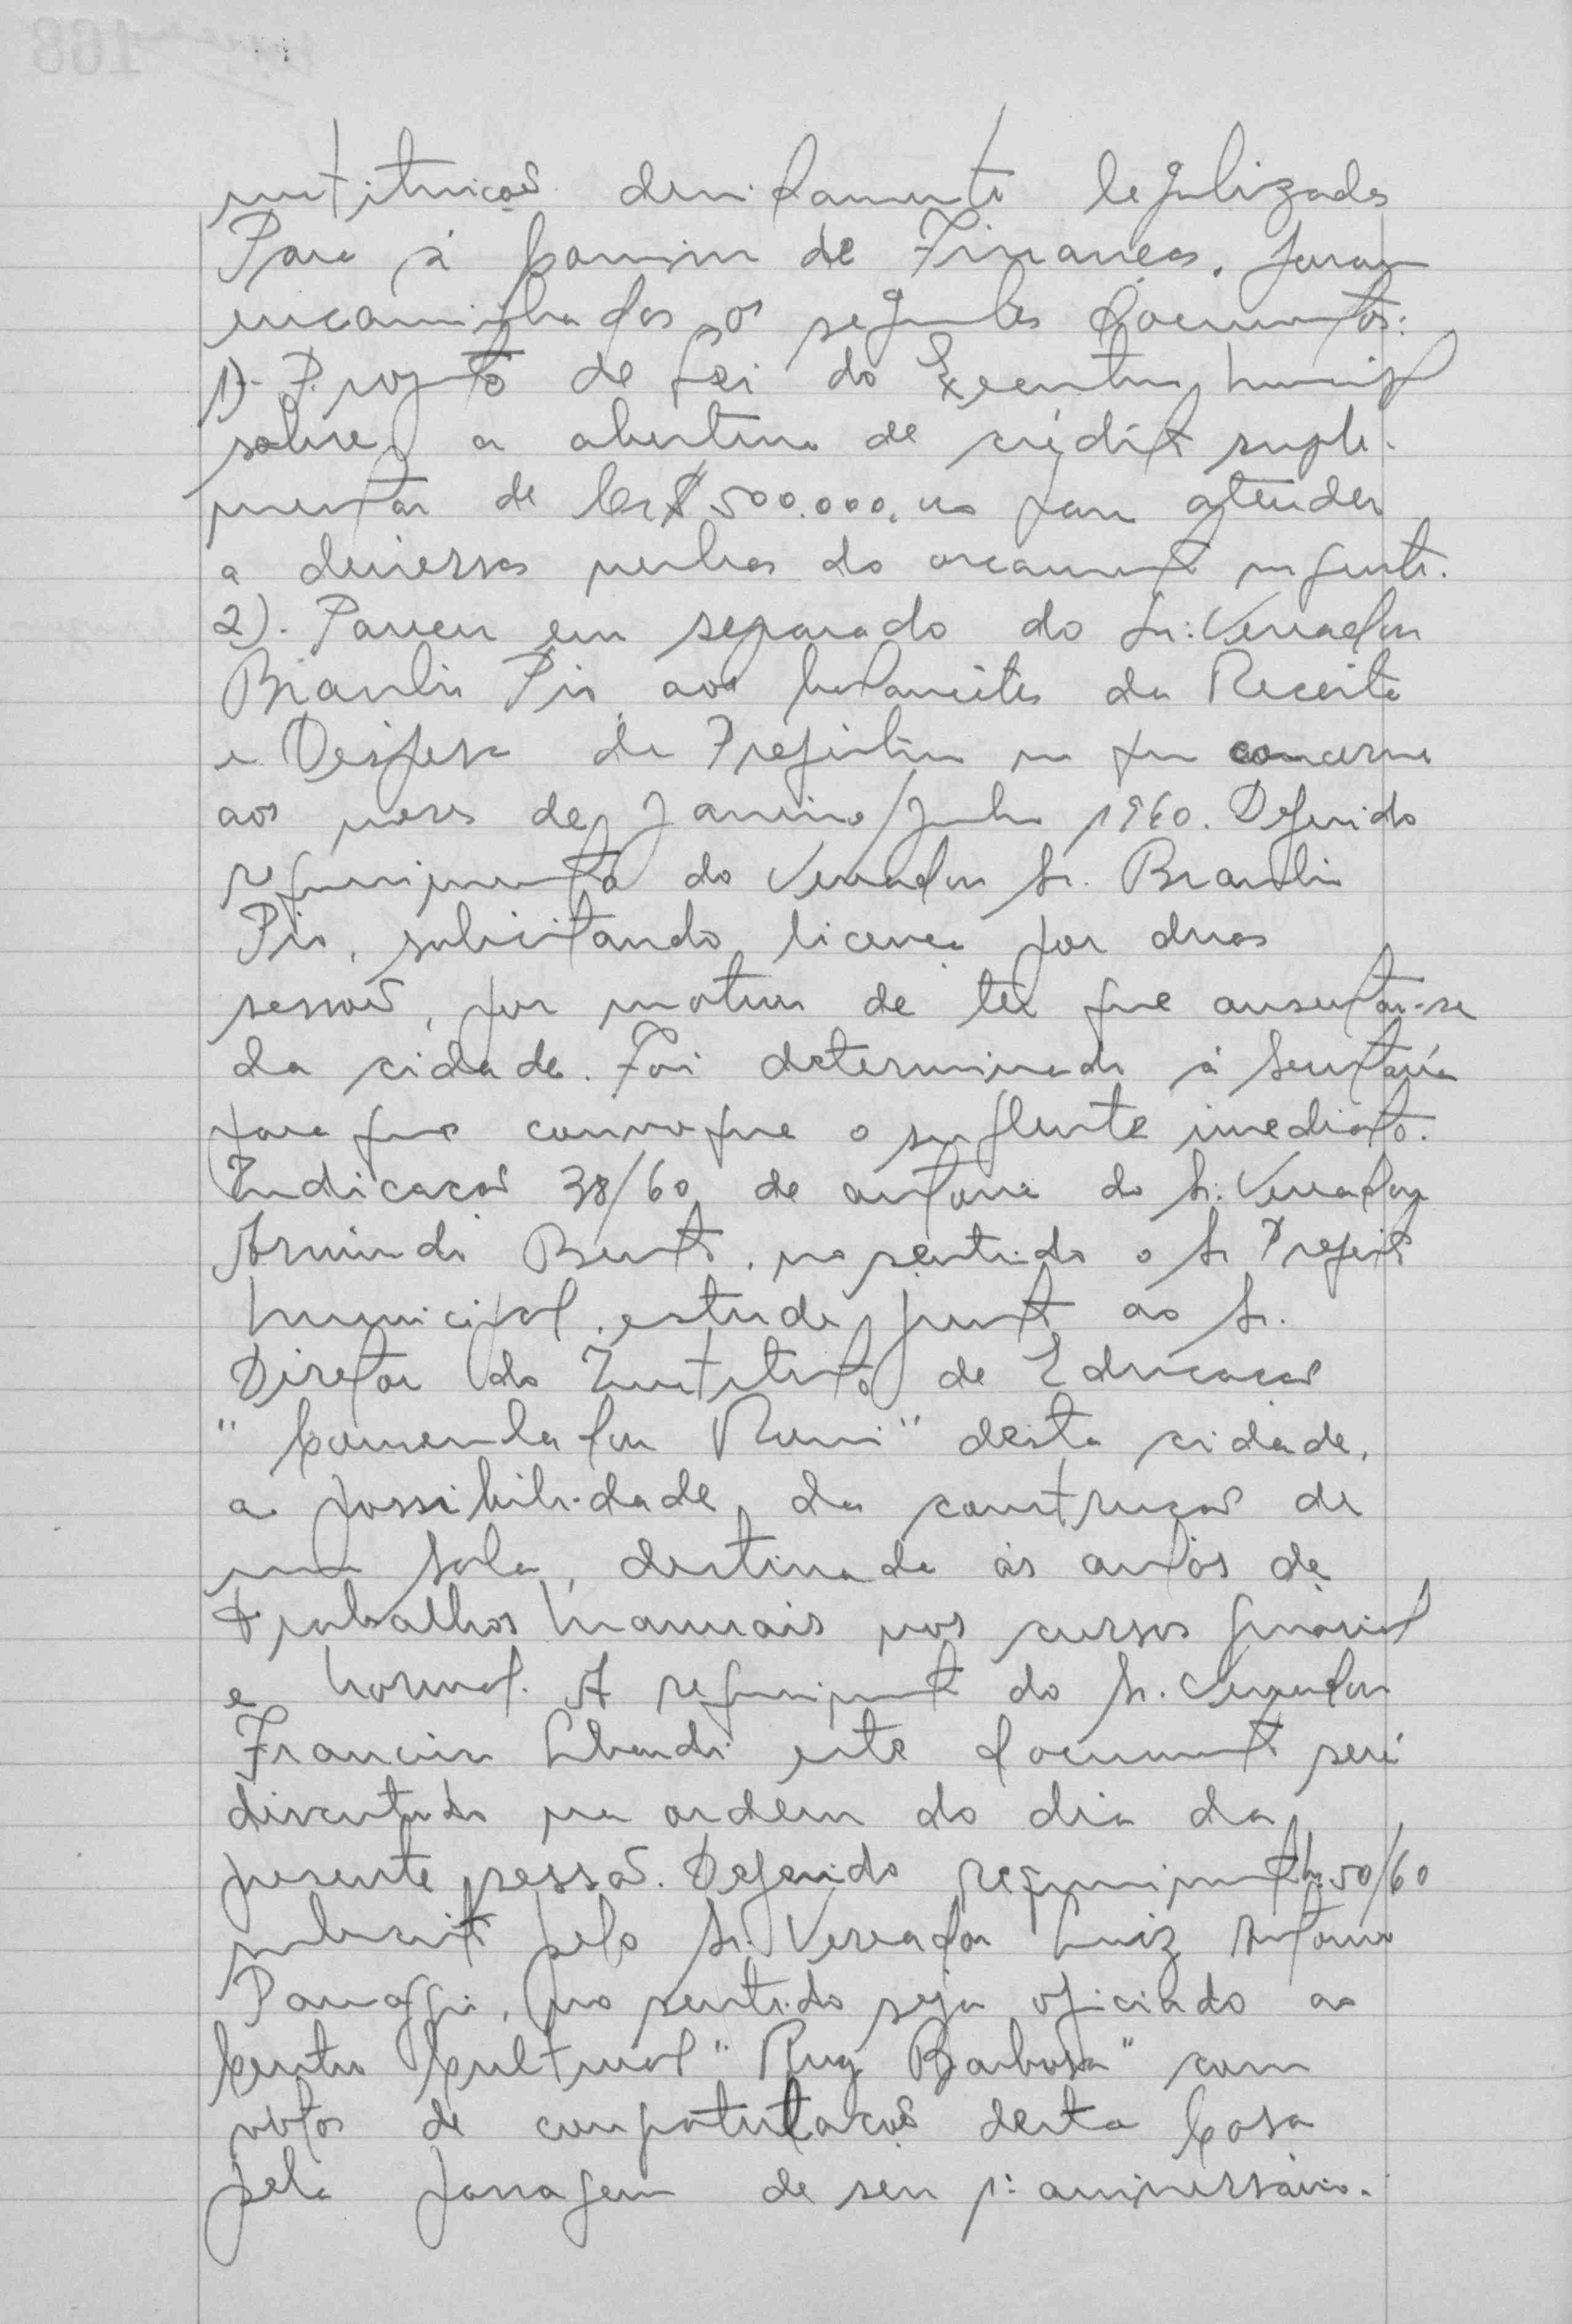 instituições devidamente legalizadas
Para à Comissão de Finanças, foram
encaminhados os seguintes documentos:
1)- Projeto de Lei do Executivo Municipal
sobre a abertura de crédito suple-
mentar de Cr$ 500.000,00 para atender
a diversas verbas do orçamento vigente.
2). Parecer em separado do Sr. Vereador
Braulio Pio aos balancetes da Receita
e Despesa da Prefeitura no que concerne
aos meses de Janeiro/Junho 1960. Deferido
requerimento do Vereador Sr. Braulio
Pio, solicitando licença por duas
sessões, por motivo de ter que ausentar-se
da cidade. Foi determinado à Secretaria
para que convoque o suplente imediato.
Indicação 38/60 de autoria do Sr. Vereador
Armindo Bento, no sentido o Sr. Prefeito
Municipal, estude junto ao Sr.
Diretor do Instituto de Educação
"Comendador Rumi" desta cidade,
a possibilidade da construção de
uma sala, destinada às aulas de
trabalhos Manuais nos cursos ginasial
e Normal. A requerimento do Sr. Vereador
Francisco este documento será
discutido na ordem do dia da
presente sessão. Deferido requerimento N. 50/60
subscrito pelo Sr. Vereador Luiz Antonio
no sentido seja oficiado ao
Centro Cultural "Ruy Barbosa" com
votos de congratulações desta Casa
pela passagem de seu 1º aniversário.